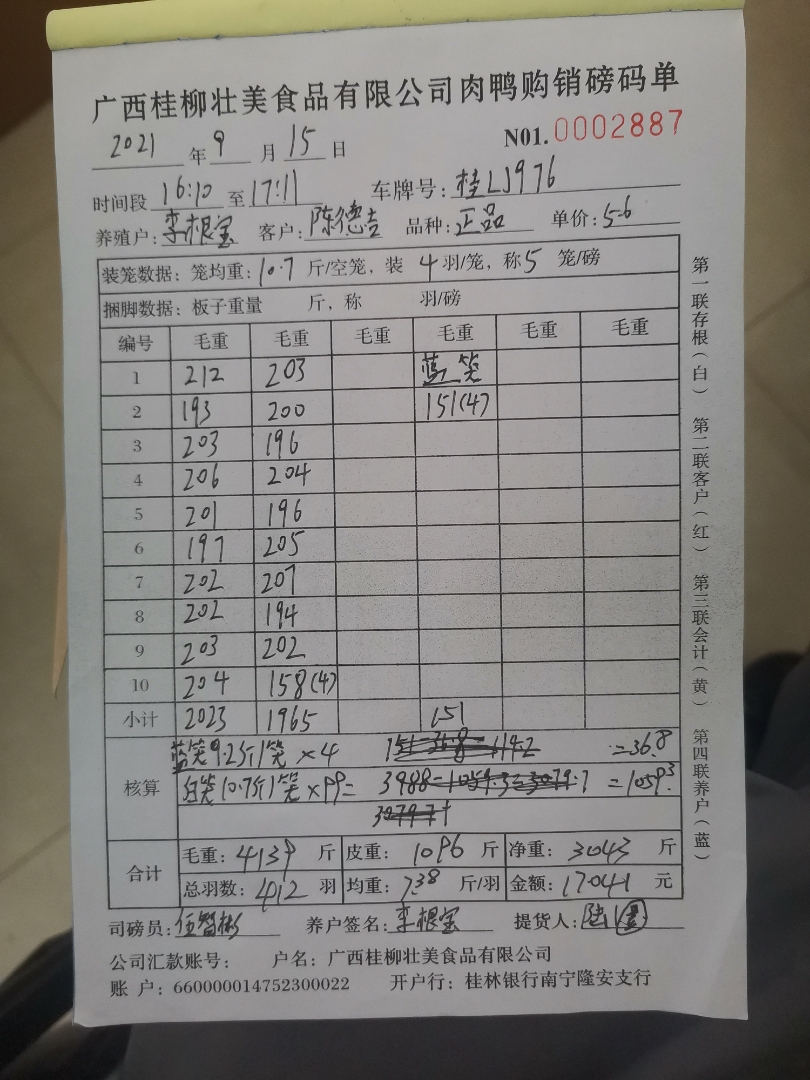 广西桂柳壮美食品有限公司肉鸭购销磅码单
2021 年 9 月 15 日 N01. 0002887
时间段 16:10 至 17:11 车牌号: 桂LJ976
养殖户: 李根宝 客户: 陈德吉 品种: 正品 单价: 5.6
装笼数据: 笼均重: 10.7 斤/空笼, 装 4 羽/笼, 称 5 笼/磅
捆脚数据: 板子重量 斤, 称 羽/磅
编号 毛重 毛重 毛重 毛重 毛重 毛重
1 212 203 蓝笼
2 193 200 151(4)
3 203 196
4 206 204
5 201 196
6 197 205
7 202 207
8 202 194
9 203 202
10 204 158(4)
小计 2023 1965 151
核算
蓝笼9.2斤/笼×4 151-36.8=114.2 =36.8
白笼10.7斤/笼×99= 3988-1059.3=3079.7 =1059.3
3079.7+
合计
毛重: 4139 斤 皮重: 1096 斤 净重: 3043 斤
总羽数: 412 羽 均重: 7.38 斤/羽 金额: 17041 元
司磅员: 伍智彬 养户签名: 李根宝 提货人: 陆
公司汇款账号: 户名: 广西桂柳壮美食品有限公司
账 户: 660000014752300022 开户行: 桂林银行南宁隆安支行
第一联存根(白) 第二联客户(红) 第三联会计(黄) 第四联养户(蓝)